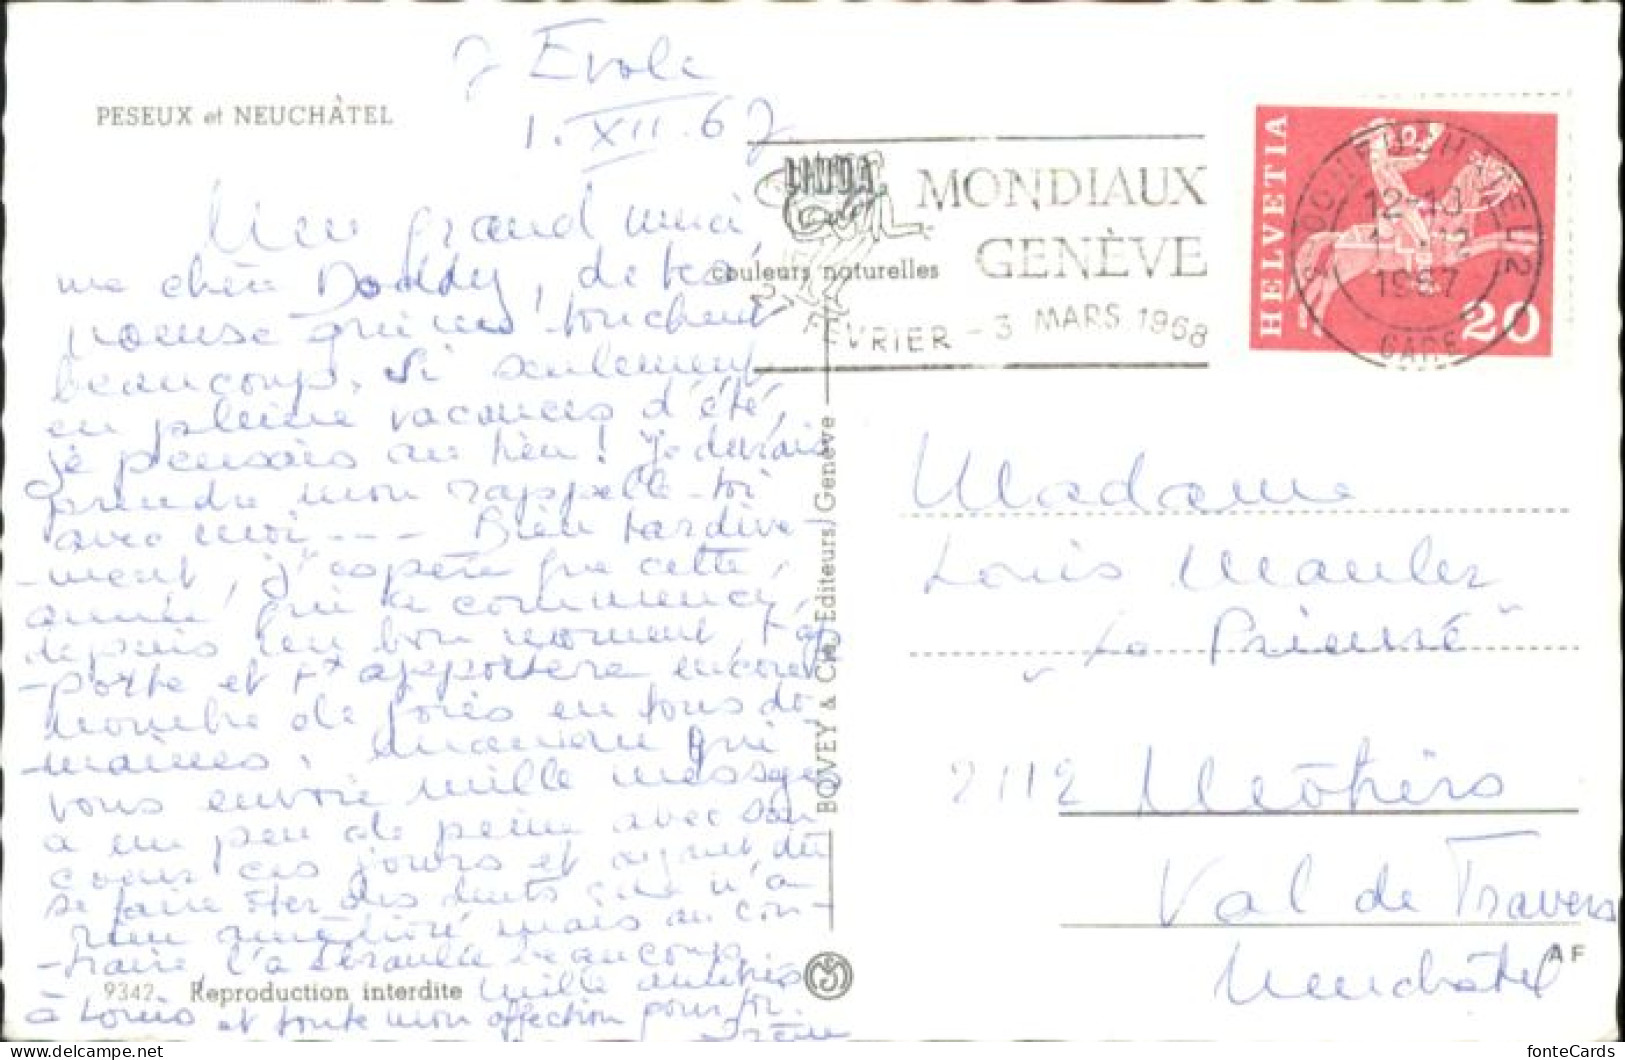 7 Evole
1. XII. 67
PESEUX et NEUCHÂTEL
Un grand merci
ma chère Doddy, de ta
qui touchent
beaucoup. Si seulement
en pleine vacances d'été,
je pensais au lieu! Je devrais
prendre mon rappelle-toi
avec moi --- Bien tardive-
-ment, j'espère que cette
année qui a commencé
depuis un bon moment, t'ap
-porte et t' apportera encore
nombre de joies en tous do-
-maines. Maman qui
vous envoie mille messages
a un peu de peine avec son
coeur ces jours et ayant dû
se faire ôter des dents cela n'a
rien amélioré mais au con-
-traire, l'a ébranlée beaucoup.
Mille amitiés
à tous et toute mon affection pour toi.
Irène
9342 Reproduction interdite
couleurs naturelles
BOVEY & Cie, Editeurs, Genève
MONDIAUX
GENÈVE
FÉVRIER - 3 MARS 1968
HELVETIA
20
2000 NEUCHÂTEL 2
12-13
1967
GARE
Madame
Louis Mauler
"Le Prieuré"
2112 Môtiers
Val de Travers
Neuchâtel
AF
fonteCards
delcampe.net